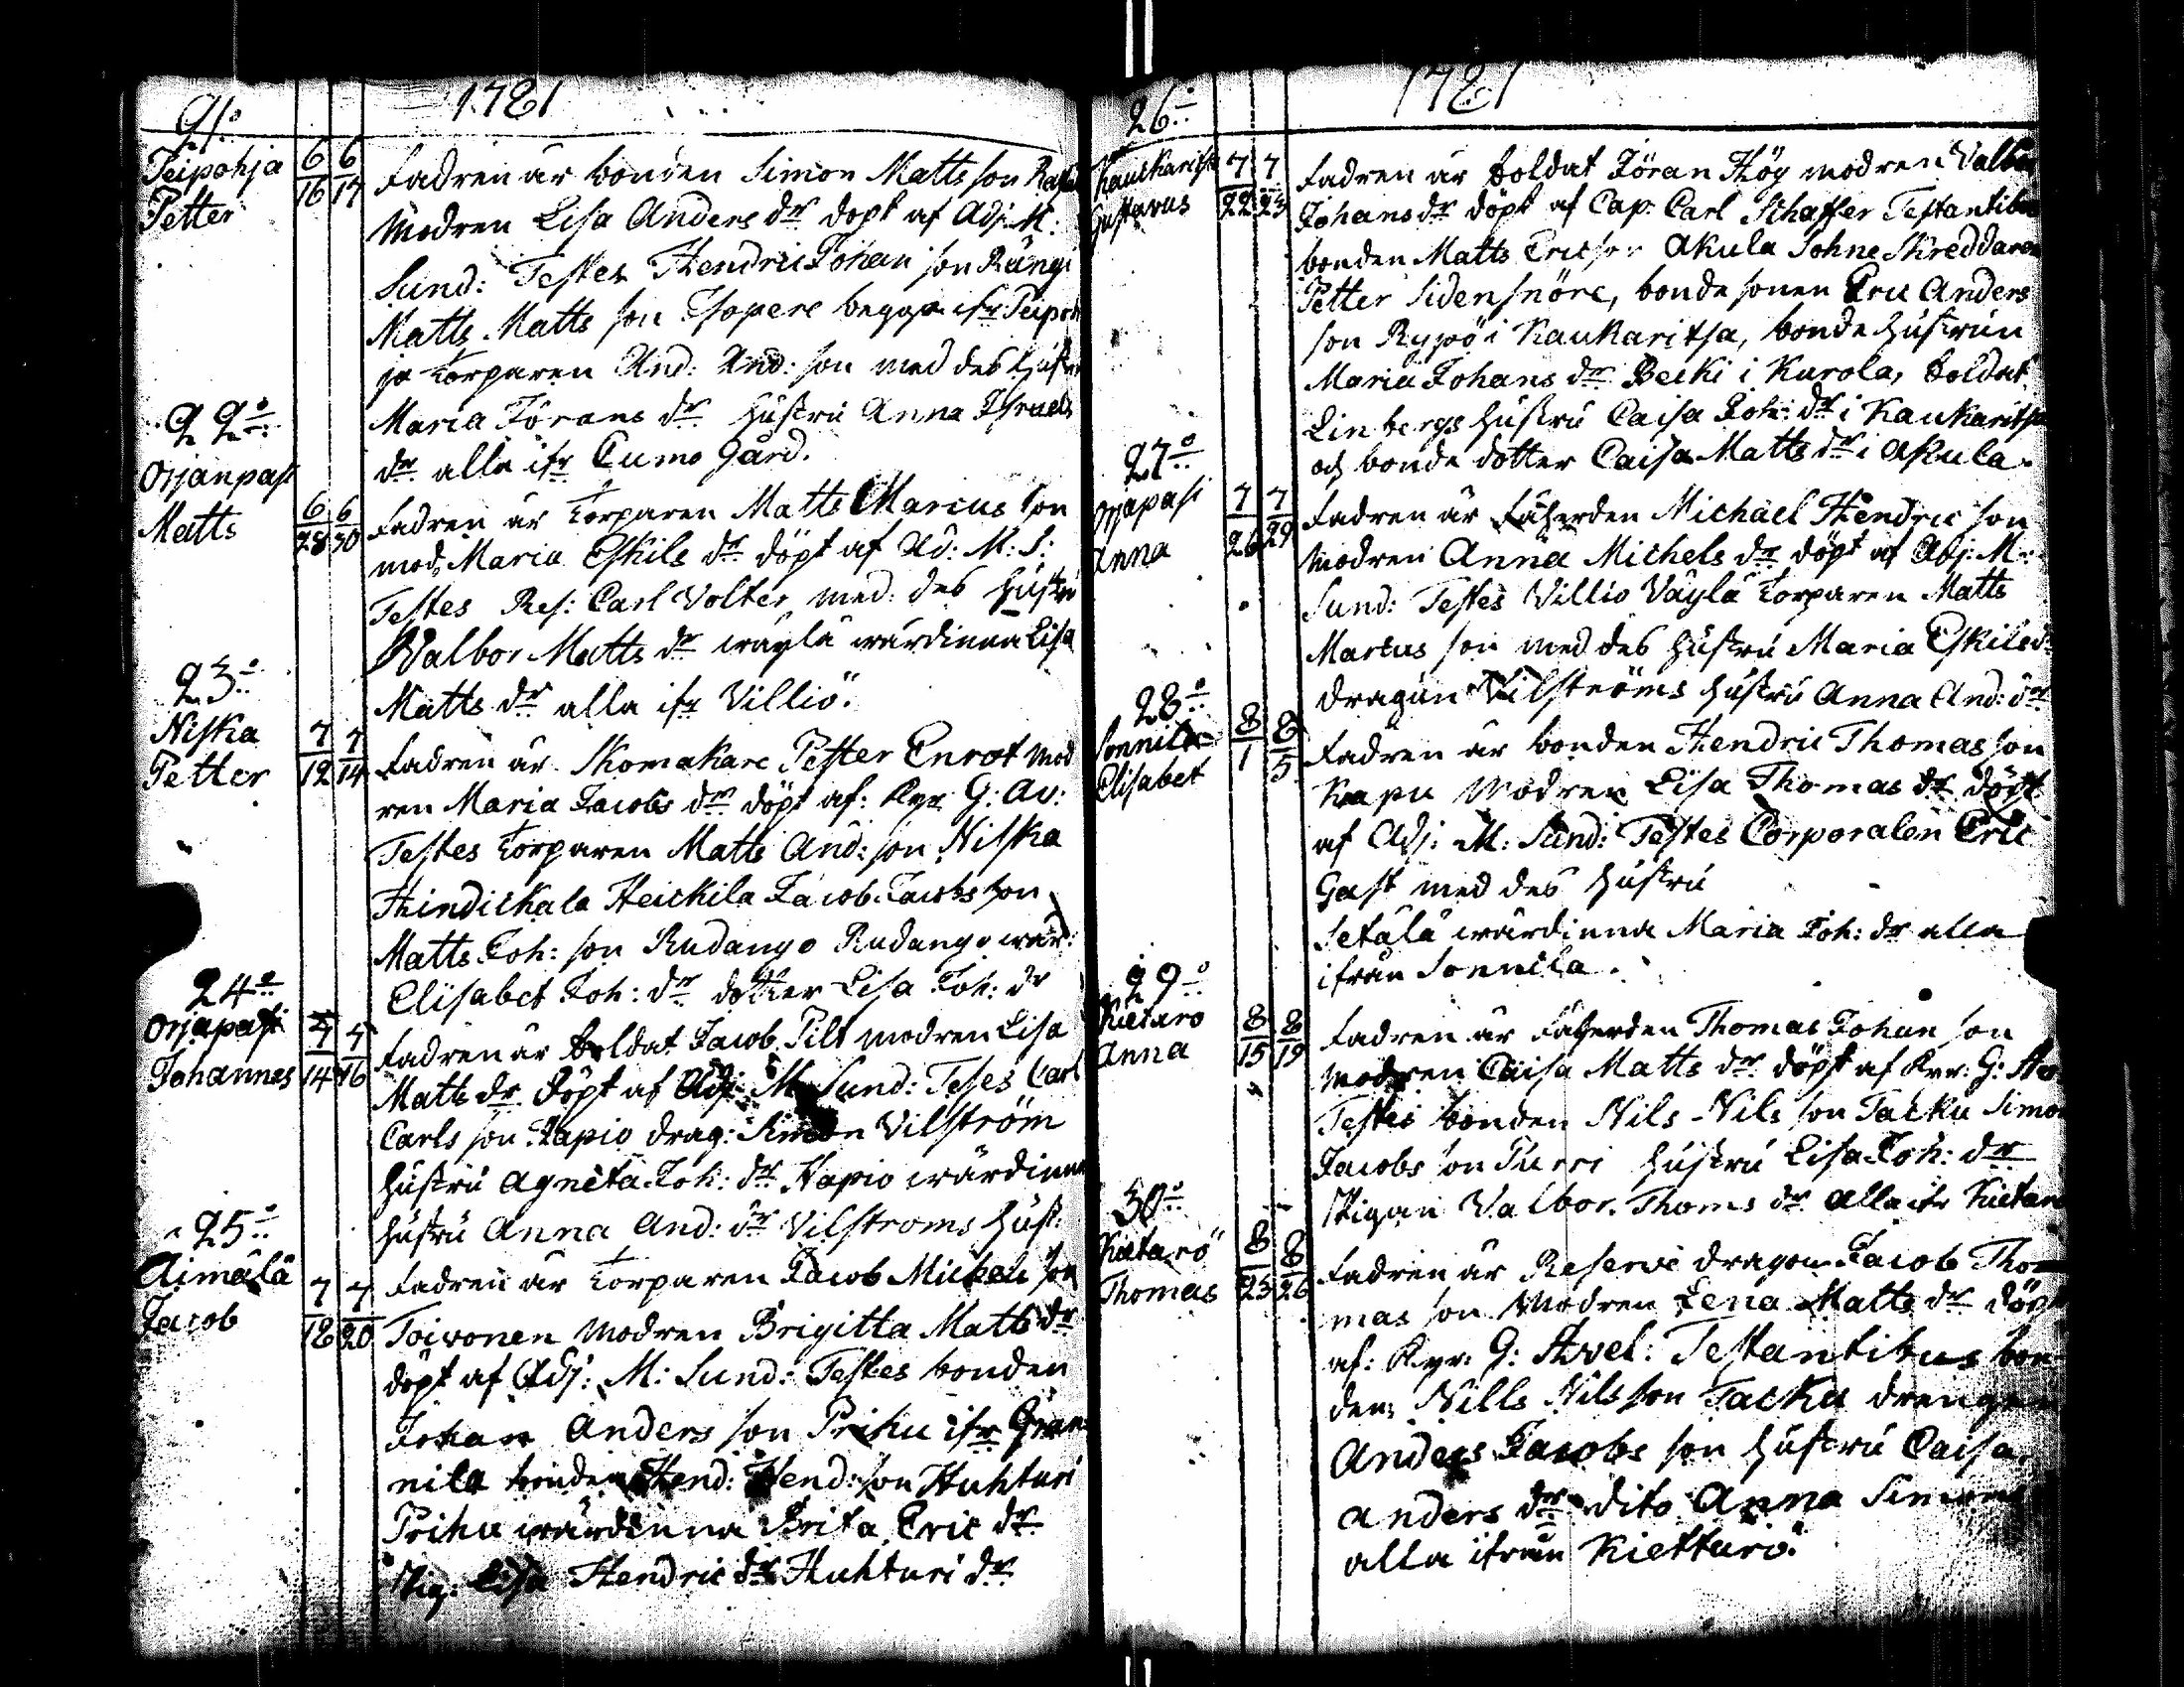 1781
21:o
Peipohja 6/16 6/17 Fadren är bonden Simon Matts son
Petter
Modren Lisa Anders dr döpt af Adj: M:
Sund: Testes Hendric Johan son Rängi
Matts Matts son Isopere begge ifr Peipoh
ja torparen And: And: son med des hustru
Maria Jörans dr hustru Anna Israels
dr alla ifr Cumo gård.
22:o
Orjanpasi
Matts 6/28 6/30 Fadren är torparen Matts Marcus son
mod: Maria Eskils dr döpt af Ad: M: S:
Testes Res: Carl Volter med des hustru
Walbor Matts dr wäylä wärdinna Lisa
Matts dr alla ifr Villiö.
23:o
Niska
Petter 7/12 7/14 Fadren är Skomakare Petter Enrot mod
ren Maria Jacobs dr döpt af: Kpr G: Av:
Testes torparen Matts And: son Niska
Hindickala Heickila Jacob Jacobs son
Matts Joh: son Rudango Rudango wär:
Elisabet Joh: dr dotter Lisa Joh: dr
24:o
Orjapasi
Johannes 7/14 7/16 Fadren är Soldat Jacob Pilt modren Lisa
Matts dr döpt af Adj: M Sund: Teses Carl
Carls son Napio drag: Simon Vilström
hustru Agneta Joh: dr Napio wärdinna
hustru Anna And: dr Vilstroms hust:
25:o
Äimälä
Jacob 7/18 7/20 Fadren är torparen Jacob Michels son
Toivonen Modren Brigitta Matts dr
döpt af Adj: M: Sund: Testes bonden
Johan Anders son Prihu ifr Gran
nila bonden Hend: Hend: son Huhturi
Prihu wärdinna Brita Eric dr
Pig: Lisa Hendric dr Huhturi dr
1781
26:o
Kaukaritsa
Gustavus 7/22 7/23 Fadren är Soldat Jöran Hög modren Valbor
Johans dr döpt af Cap: Carl Schaffer Testantibus
bonden Matts Ericson Akula Sohne Skreddaren
Petter Sidensnöre, bonde sonen Eric Anders
son Rypö i Kaukaritsa, bonde hustrun
Maria Johans dr Becki i Kurola, Soldat
Linbergs hustru Caisa Joh: dr i Kaukaritsa
och bonde dotter Caisa Matts dr i Akula.
27:o
Orjapasi
Anna 7/26 7/29 Fadren är Fäherden Michäel Hendric son
Modren Anna Michels dr döpt af Adj: M:
Sund: Testes Villio Väylä torparen Matts
Marcus son med des hustru Maria Eskils dr
dragun Vilströms hustru Anna And: dr
28:o
Sonnila
Elisabet 8/1 8/5 Fadren är bonden Hendric Thomas son
Kapu Modren Lisa Thomas dr döpt
af Adj: M: Sund: Testes Corporalen Eric
Gast med des hustru
Setälä wärdinna Maria Joh: dr alla
ifrån Sonnila.
29:o
Kietaro
Anna 8/15 8/19 Fadren är Fäherden Thomas Johan son
Modren Caisa Matts dr döpt af Kpr: G:
Testes bonden Nils Nils son Tacku Simon
Jacobs son Purri hustru Lisa Joh: dr
Pigan Valbor Thoms dr alla ifr Kietaro
30:o
Kietarö
Thomas 8/23 8/26 Fadren är Reserve dragon Jacob Tho
mas son Modren Lena Matts dr döpt
af: Kpr: G: Avel: Testantibus bon
den Nills Nils son Tacku drengen
Anders Jacobs son hustru Caisa
Anders dr dito Anna Simons
alla ifrån Kiettärö.